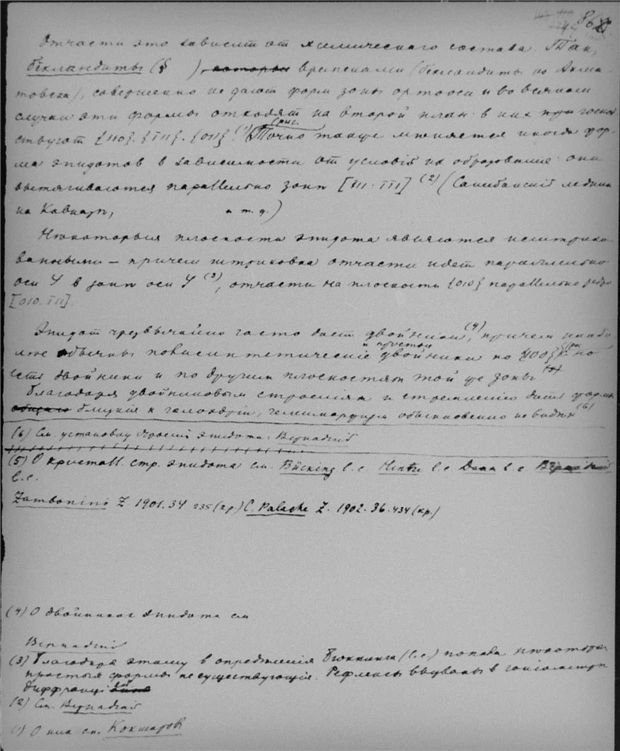 86
Отчасти это зависит от химическаго состава. Так,
бекландиты (§ ), которые временами (бекландиты из Ахма-
товска), совершенно не дают форм зоны ортооси и во всяком
случае эти формы отходят на второй план: в них при господ
ствуют {110}. {111}. {011}. (1) Точно также меняется иногда фор-
ма эпидотов в зависимости от условий их образования: они
вытягиваются параллельно зоне [111. 111] (2) (
на Кавказе, и т. д.)
Некоторыя плоскости эпидота являются исштрихо-
ванными — причем штриховка отчасти идет параллельно
оси Y в зоне оси Y (3), отчасти на плоскости {010} параллельно ребру
[010. 111].
Эпидот чрезвычайно часто дает двойники, (4) причем наибо-
лее обычны полисинтетические и простые двойники по {100}.
есть двойники и по другим плоскостям той же зоны
Благодаря двойниковым строениям и стремлению дать формы
близкия к голоэдрии, гемиморфизм обыкновенно не виден (5)
(6) См. установку эпидота: Вернадский
(5) О кристалл. стр. эпидота см. Bücking l. c. Hintze l. c. Dana l. c.
l. c.
Zambonini Z 1901. 34 235 (кр) C. Palache Z. 1902. 36. 434 (кр)
(4) О двойниках эпидота см
Вернадский
(3) Благодаря этому в определения Бюкинга (l. c.) попали некоторыя
простыя формы не существующия. Рефлексы вызваны в гониометре
диффракц
(2) См. Вернадский
(1) О них см. Кокшаров